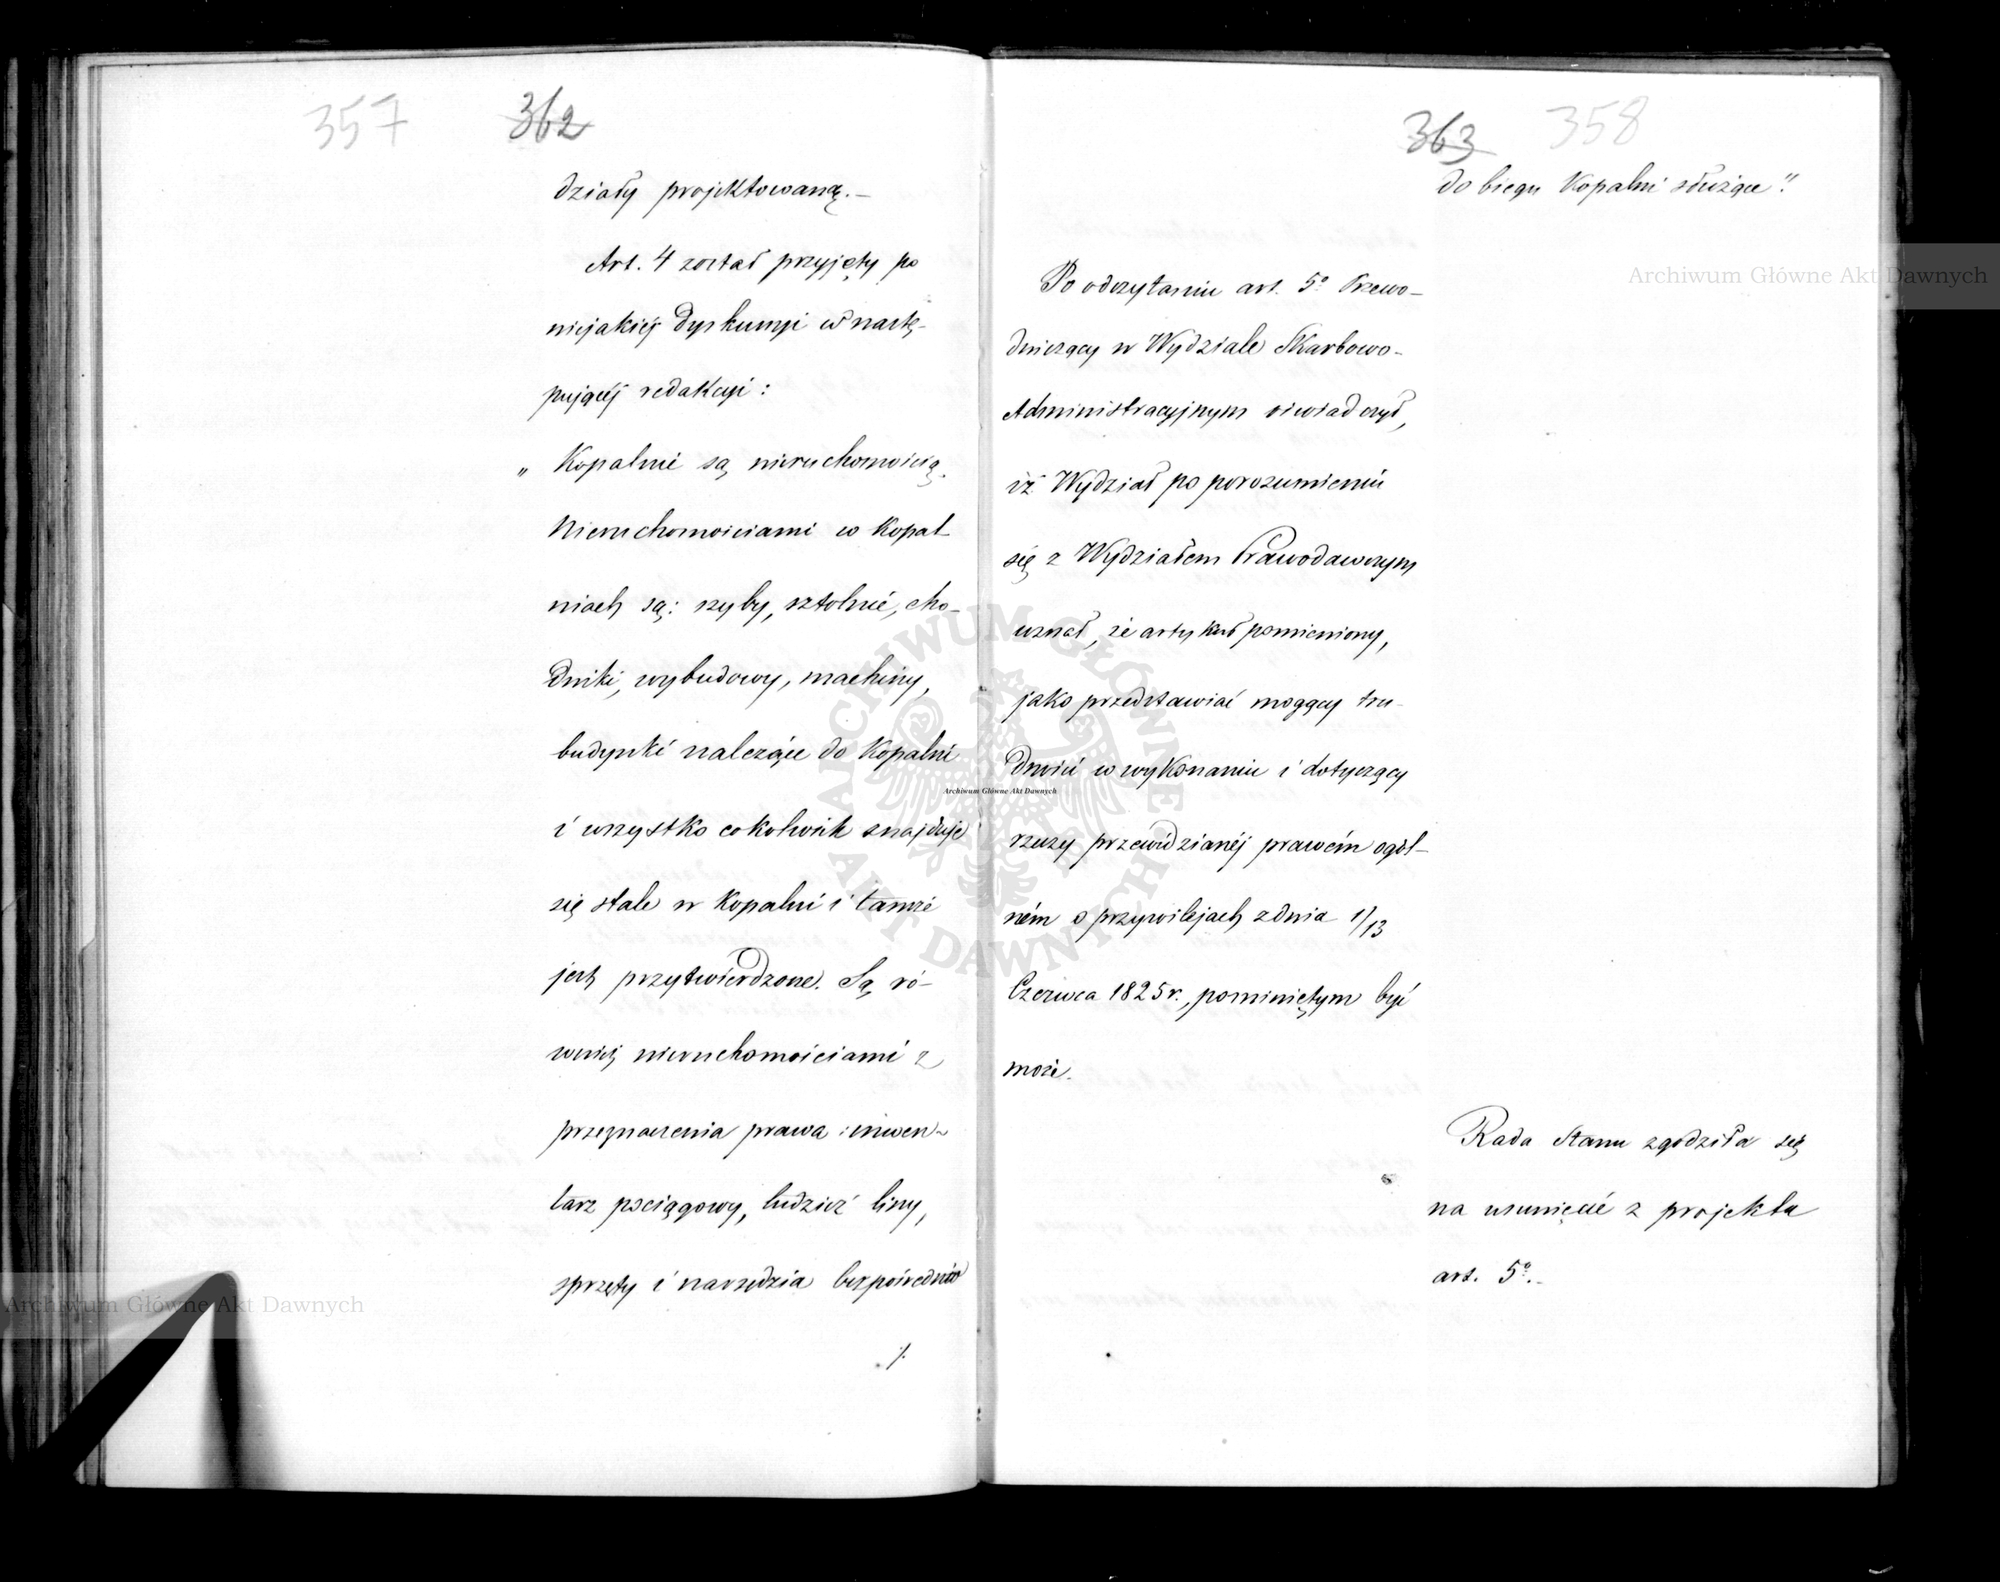 357 362
działy projektowaną.—
Art. 4 został przyjęty po
niejakiéj dyskusyi w nastę-
pującéj redakcyi:
„Kopalnie są nieruchomością.
Nieruchomościami w kopal-
niach są: szyby, sztolnie, cho-
dniki, wybudowy, machiny,
budynki należące do Kopalni
i wszystko cokolwiek znajduje
się stale w Kopalni i tamże
jest przytwierdzone. Są ró-
wnież nieruchomościami z
przeznaczenia prawa: inwen-
tarz pociągowy, tudzież liny,
sprzęty i narzędzia bezpośrednio
./.
363 358
do biegu Kopalni służące".
Po odczytaniu art. 5º Przewo-
dniczący w Wydziale Skarbowo-
Administracyjnym oświadczył,
iż Wydział po porozumieniu
się z Wydziałem Prawodawczym
uznał, że artykuł pomieniony,
jako przedstawiać mogący tru-
dność w wykonaniu i dotyczący
rzeczy przewidzianéj prawém ogól-
ném o przywilejach z dnia 1/13
Czerwca 1825 r., pominiętym być
może.
Rada Stanu zgodziła się
na usunięcie z projektu
art. 5º.—
Archiwum Główne Akt Dawnych
Archiwum Główne Akt Dawnych
Archiwum Główne Akt Dawnych
ARCHIWUM GŁÓWNE AKT DAWNYCH